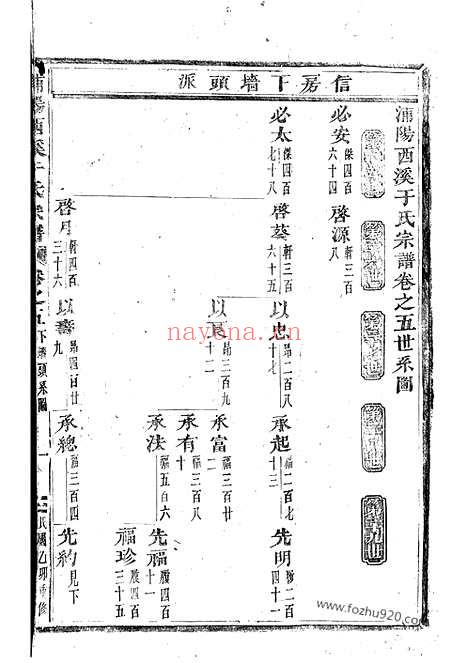 浦陽西溪于氏宗譜卷之五世系圖
信房下墻頭派
必安 傑四百六十四
啓源 軒三百八
必太 傑四百七十八
啓葵 軒三百六十五
以忠 昂二百八十七
承起 福二百七十三
先明 履二百四十一
以良 昂三百九十二
承富 福三百廿二
承有 福三百八十
承法 福五百六
先福 履四百十一
福珍 履四百三十五
啓月 軒四百三十六
以壽 昂四百廿九
承總 福三百四
先約 見下
浦陽西溪于氏宗譜
卷之五
民國乙卯重修
nayona.cn
海量家谱电子版
www.fozhu920.com